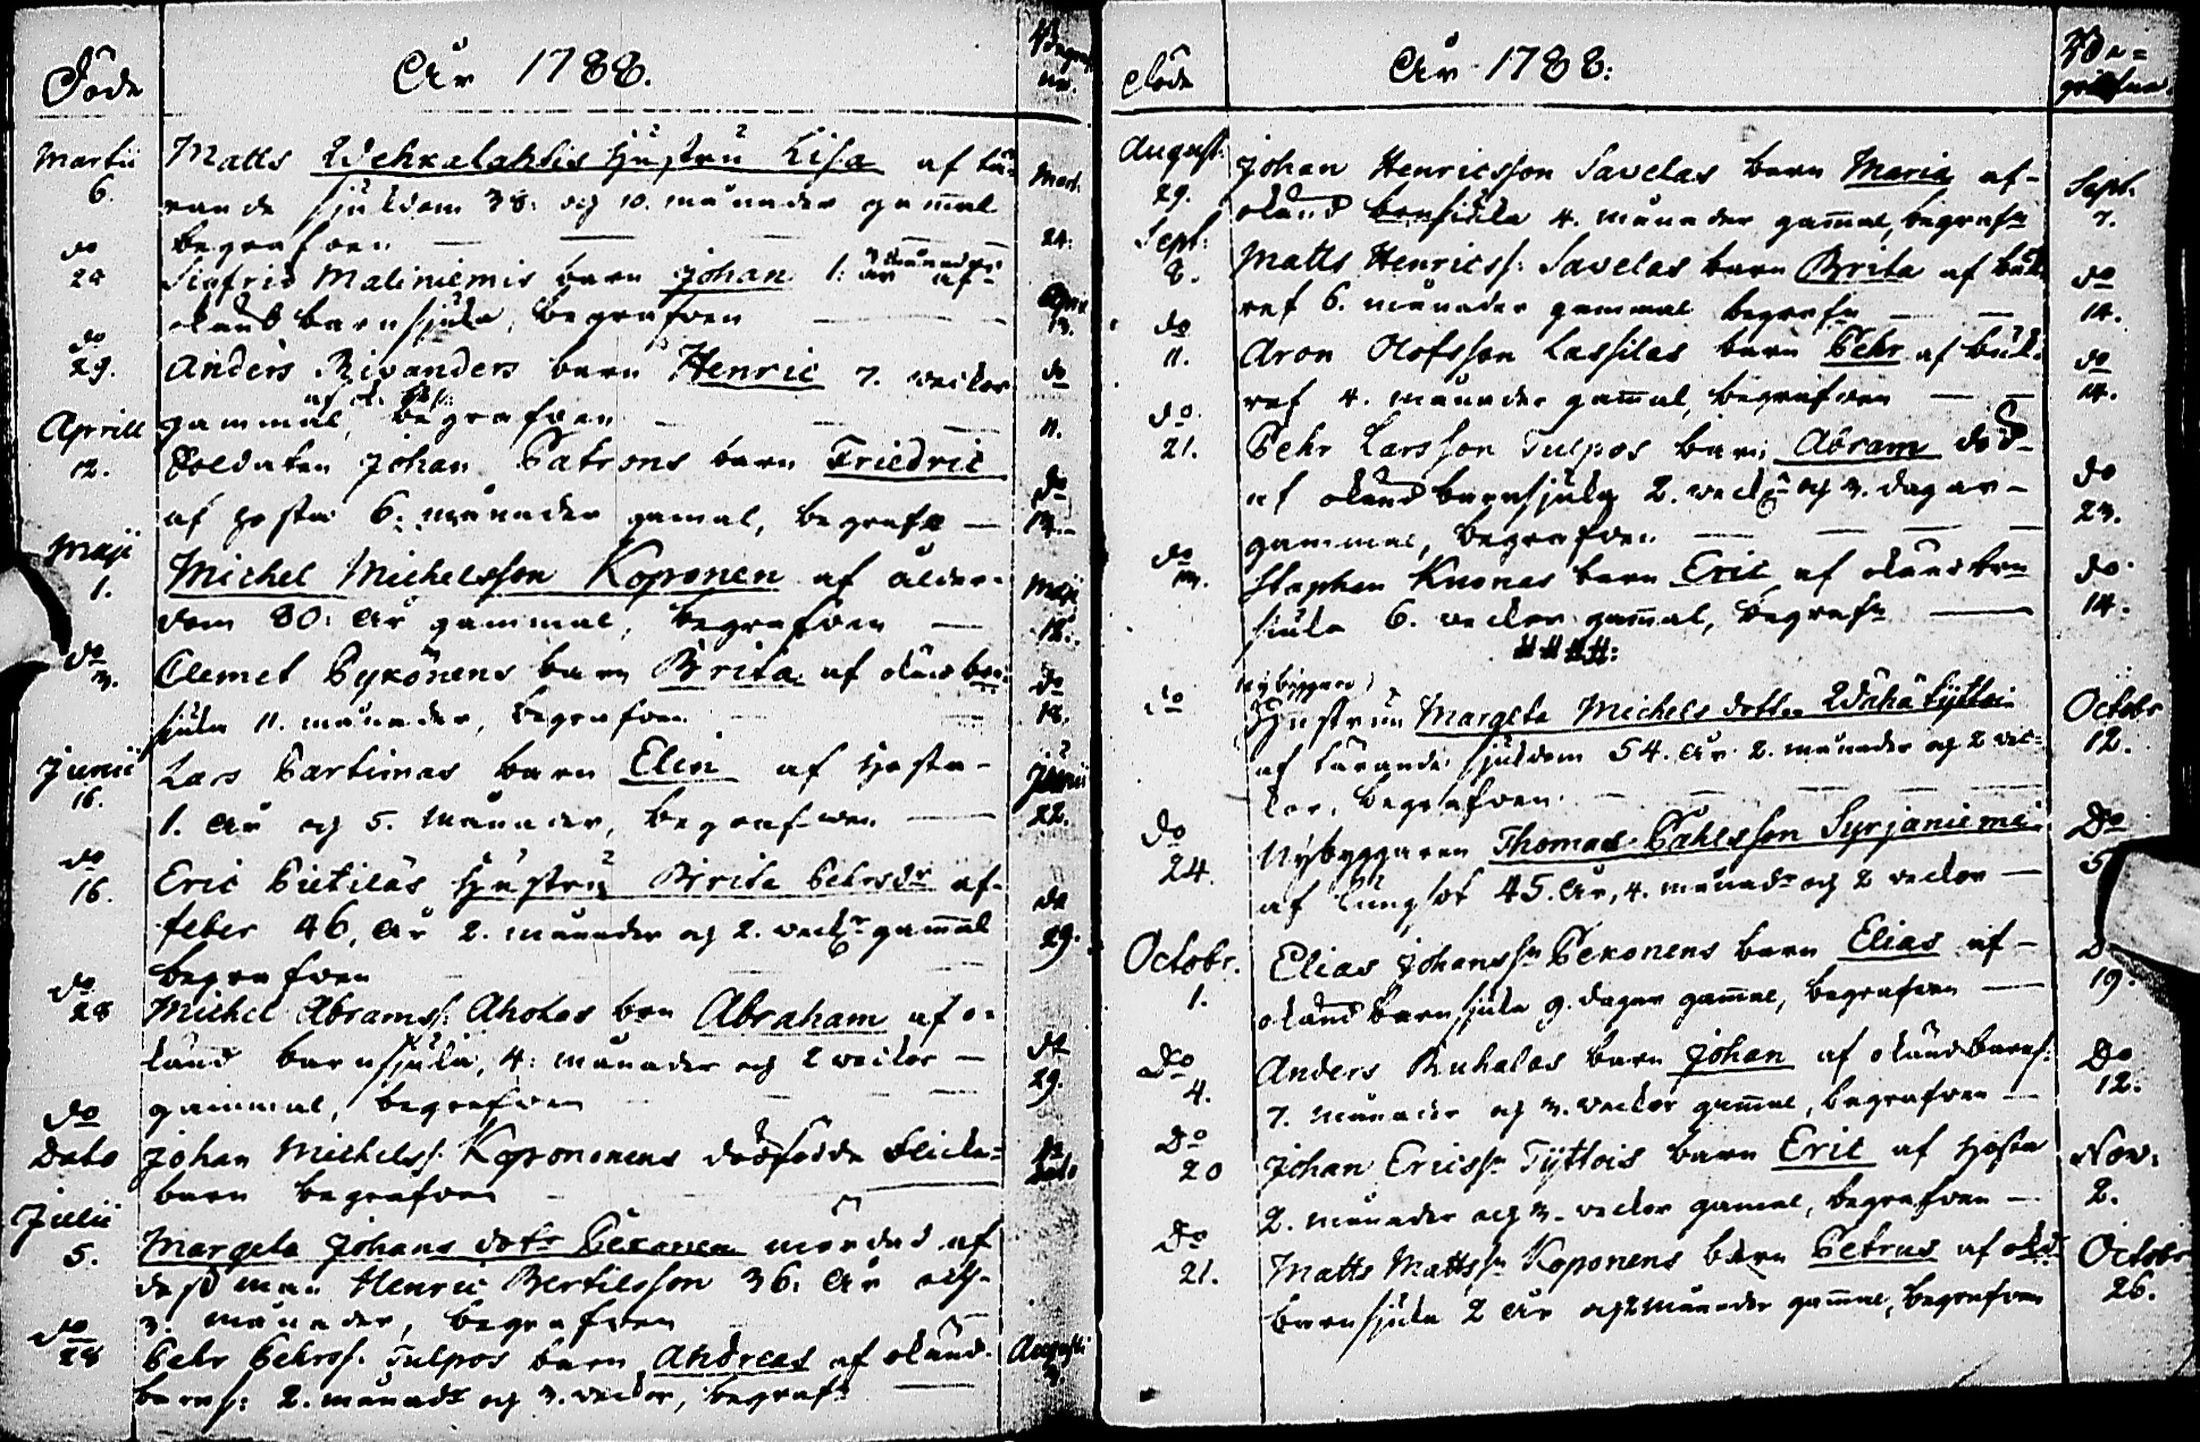 Döde
År 1788.
Begrafne.
Martii 6. Matts Wehkalahtis Hustru Lisa af tä-
rande sjukdom 38. och 10. månader gam̅al Mart.
begrafven 24.
do 24 Sigfrid Maliniemis barn Johan 1. år 3 månader af
okänd barnsjuka, begrafven April 13.
do 29. Anders Rivanders barn Henric 7. veckor do
gammal, begrafven 11.
Aprill 12. Soldaten Johan Patrons barn Friedric
af hosta 6. månader gamal, begrafn do 13.
Maji 1. Michel Michelsson Koponen af ålder-
dom 80. år gammal, begrafven Maji 12.
do 3. Clemet Pykönens barn Brita af okänd barn
sjuka 11. månader, begrafven do 18.
Junii 16. Lars Partimas barn Elin af hosta
1. år och 5. månader, begrafven Junii 22.
do 16. Eric Pietiläs Hustru Brita Pehrsdr af
feber 46, år 2. månader och 2. veckr gam̅al do 29.
begrafven
do 28 Michel Abramss: Aholas barn Abraham af o-
känd barnsjuka, 4. månader och 2 veckor do 29.
gammal, begrafven
do Dato Johan Michelss. Koponenens dödfödde Flicke-
barn begrafven do Dato
Julii 5. Margeta Johans dotr Pekonen mördad af
dess man Henric Bertilsson 36. år och
3. månader, begrafven
do 28 Pehr Pehrss. Tulpos barn Andreas af okänd Augusti
barns: 2. månadr och 3. veckor, begrafn 3.
Döde
År 1788:
Be=
grafne
August: 29. Johan Henricsson Savelas barn Maria af
okänd barnsjuka 4. månader gam̅al, begrafn Sept: 7.
Sept: 8. Matts Henricss: Savelas barn Brita af buk
ref 6. månader gammal begrafn do 14.
do 11. Aron Olofsson Lassilas barn Pehr af buk-
ref 4. månader gam̅al, begrafven do 14.
do 21. Pehr Larsson Tulpos barn Abram död
af okänd barnsjuka 2. veckr och 3. dagar do 23.
gammal, begrafven
do 3. Staphan Knonas barn Eric af okänd barn
sjuka 6. veckor gam̅al, begrafn do 14.
Nybyggare
do Hustrun Margeta Michels dotter Wähätyttö
af tärande sjukdom 54. år 2. månader och 2 vec- Octobr 12.
kor, begrafven
do 24. Nybyggaren Thomas Påhlsson Syrjäniemi
af lungsot 45. år, 4. månadr och 2 veckor Do 5
Octobr. 1. Elias Johanssn Pekonens barn Elias af
okänd barnsjuka 9. dagar gam̅al, begrafven 19.
Do 4. Anders Ruhalas barn Johan af okänd barns:
7. månader och 3. veckor gam̅al, begrafven Do 12.
Do 20 Johan Ericssn Tyttöis barn Eric af hosta
2. månader och 3. veckor gamal, begrafven Nov: 2.
Do 21. Matts Mattssn Koponens barn Petrus af okd
barnsjuka 2 år och 2 månader gam̅al, begrafven Octobr 26.